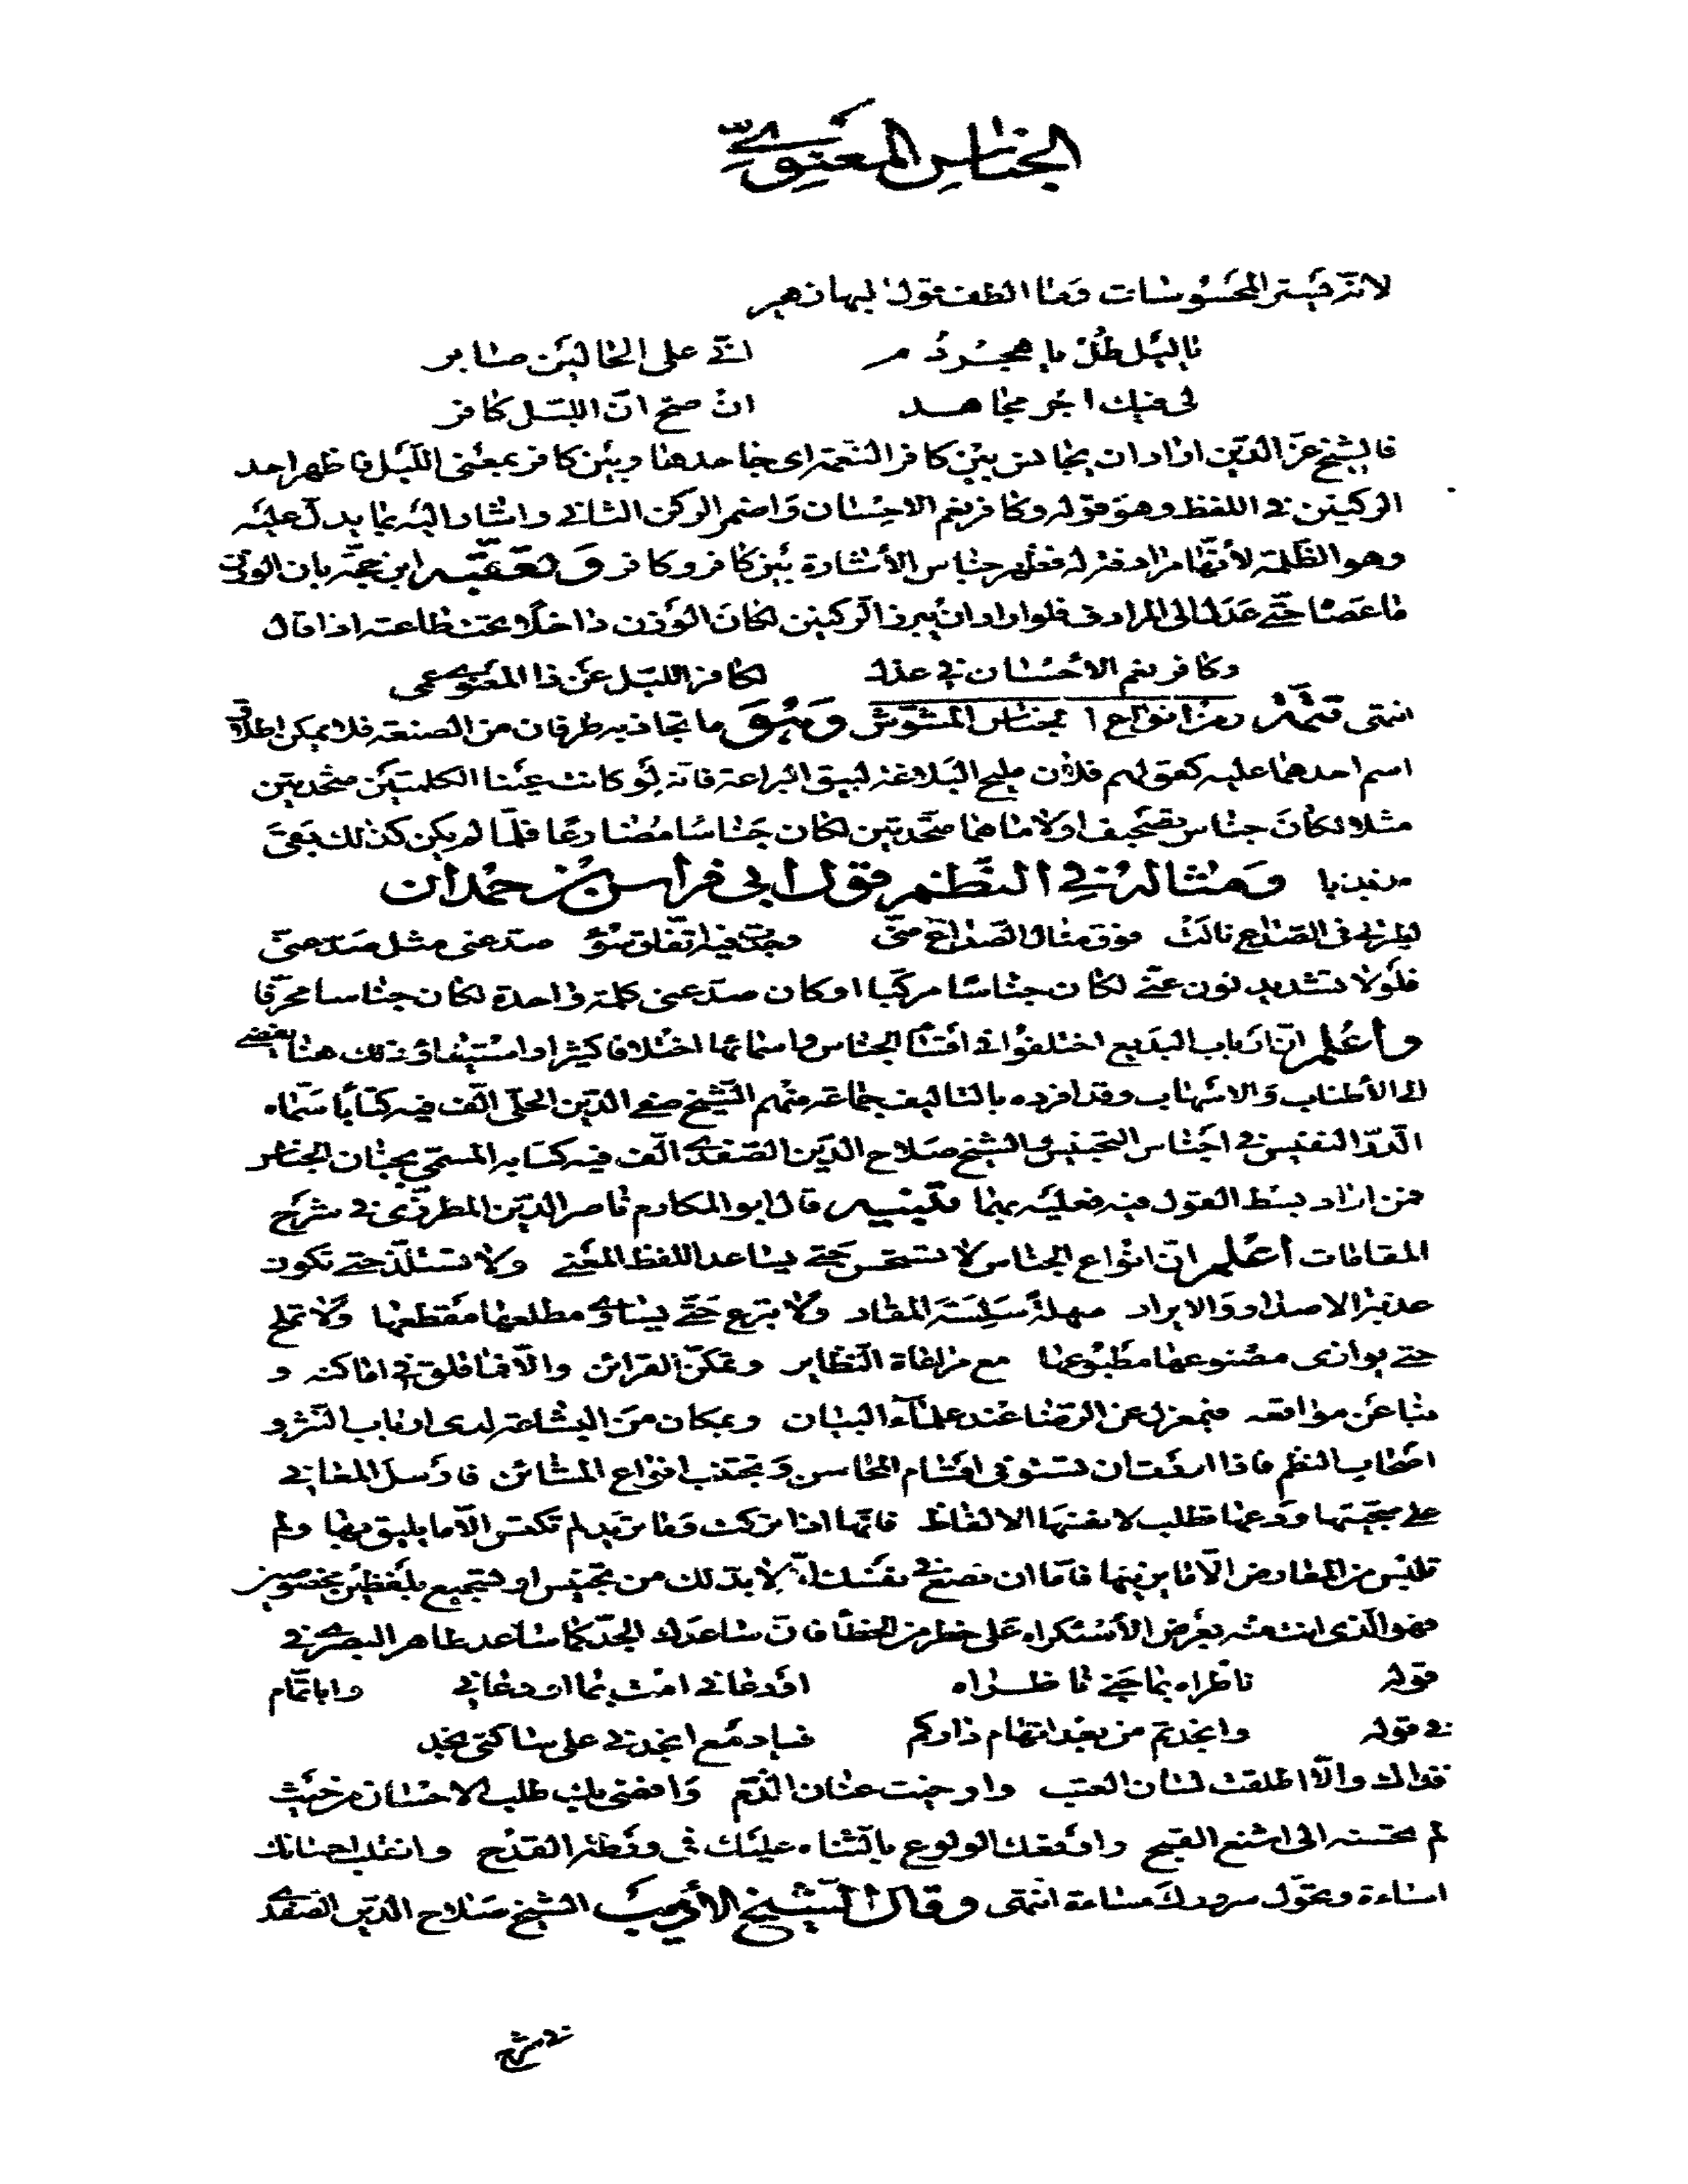 الجناس المعنوي
لانه يستر المحسوسات وما الطف قول البهاء زهير
يا ليل طل يا هجر دم اني على الحالين صابر
لي فيك اجر مجاهد ان صح ان الليل كافر
فالشيخ عز الدين اراد ان يجانس بين كافر النعمة اي جاحدها وبين كافر بمعنى الليل فاظهر احد
الركنين في اللفظ وهو قوله وكافر نعم الاحسان واضمر الركن الثاني واشار اليه بما يدل عليه
وهو الظلمة لأنها مرادفة له فظهر جناس الأشارة بين كافر وكافر وتعقبه ابن حجة بان الوزن
ما عصا حتى عدل الى المرادف فلو اراد ان يبرز الركنين لكان الوزن داخلا تحت طاعته اذا قال
وكافر نعم الأحسان في عذل لكافر الليل عن ذا المعنوي عمي
انتهى تتمة ومن انواع الجناس المشوش وهو ما تجاذبه طرفان من الصنعة فلا يمكن اطلاق
اسم احدهما عليه كقولهم فلان مليح البلاغة لبيق البراعة فانه لو كانت عينا الكلمتين متحدتين
مثلا لكان جناس تصحيف او لاماهما متحدتين لكان جناسا مضارعا فلما لم يكن كذلك بقي
مذبذبا ومثاله في النظم قول ابي فراس بن حمدان
فوق منال الصداع مني وجدت فيه اتفاق سوء صدعني مثل صد عني
فلولا تشديد نون عني لكان جناسا مركبا او كان صد عني كلمة واحدة لكان جناسا محرفا
وأعلم ان ارباب البديع اختلفوا في اقسام الجناس واسمائها اختلافا كثيرا واستيفاؤ ذلك هنا يفضي
الى الأطناب والاسهاب وقد افرده بالتاليف جماعة منهم الشيخ صفي الدين الحلي الف فيه كتابا سماه
الدر النفيس في اجناس التجنيس والشيخ صلاح الدين الصفدي الف فيه كتابه المسمى بجنان الجناس
فمن اراد بسط القول فيه فعليه بهما تنبيه قال ابو المكارم ناصر الدين المطرزي في شرح
المقامات أعلم ان انواع الجناس لا تستحسن حتى يساعد اللفظ المعنى ولا تستلذ حتى تكون
عذبة الاصدار والايراد سهلة سلسة المقاد ولا تبرع حتى يساوي مطلعها مقطعها ولا تملح
حتى يوازي مصنوعها مطبوعها مع مراعاة النظاير وتمكن القرائن والا فما قلق في اماكنه و
نبا عن مواقعه فبمعزل عن الرضا عند علماء البيان وبمكان من البشاعة لدى ارباب النثر و
اصحاب النظم فاذا اردت ان تستوفي اقسام المحاسن وتجتنب انواع المشائن فارسل المعاني
على سجيتها ودعها تطلب لانفسها الالفاظ فانها اذا تركت وما تريد لم تكتس الا ما يليق بها ولم
تلبس من المعارض الا ما يزينها فاما ان تضع في نفسك انه لا بد لك من تجنيس او تسجيع بلفظين مخصوصين
فهو الذي انت منه بعرض الأستكراه على خطر من الخطأ فان ساعدك الجد كما ساعد طاهر البصري في
قوله ناظراه بما جنى ناظراه او دعاني امت بما اودعاني وابا تمام
في قوله وانجدتم من بعد اتهام داركم فيا دمع انجدني على ساكني نجد
فذاك والا اطلقت لسان العتب وارخيت عنان الذم وافضى بك طلب الاحسان من حيث
لم تحسنه الى اشنع القبيح واوقعك الولوع بالثناء عليك في ورطة القدح وانقلب احسانك
اساءة وتحول سرورك مساءة انتهى وقال الشيخ الأديب الشيخ صلاح الدين الصفدي
في شرح